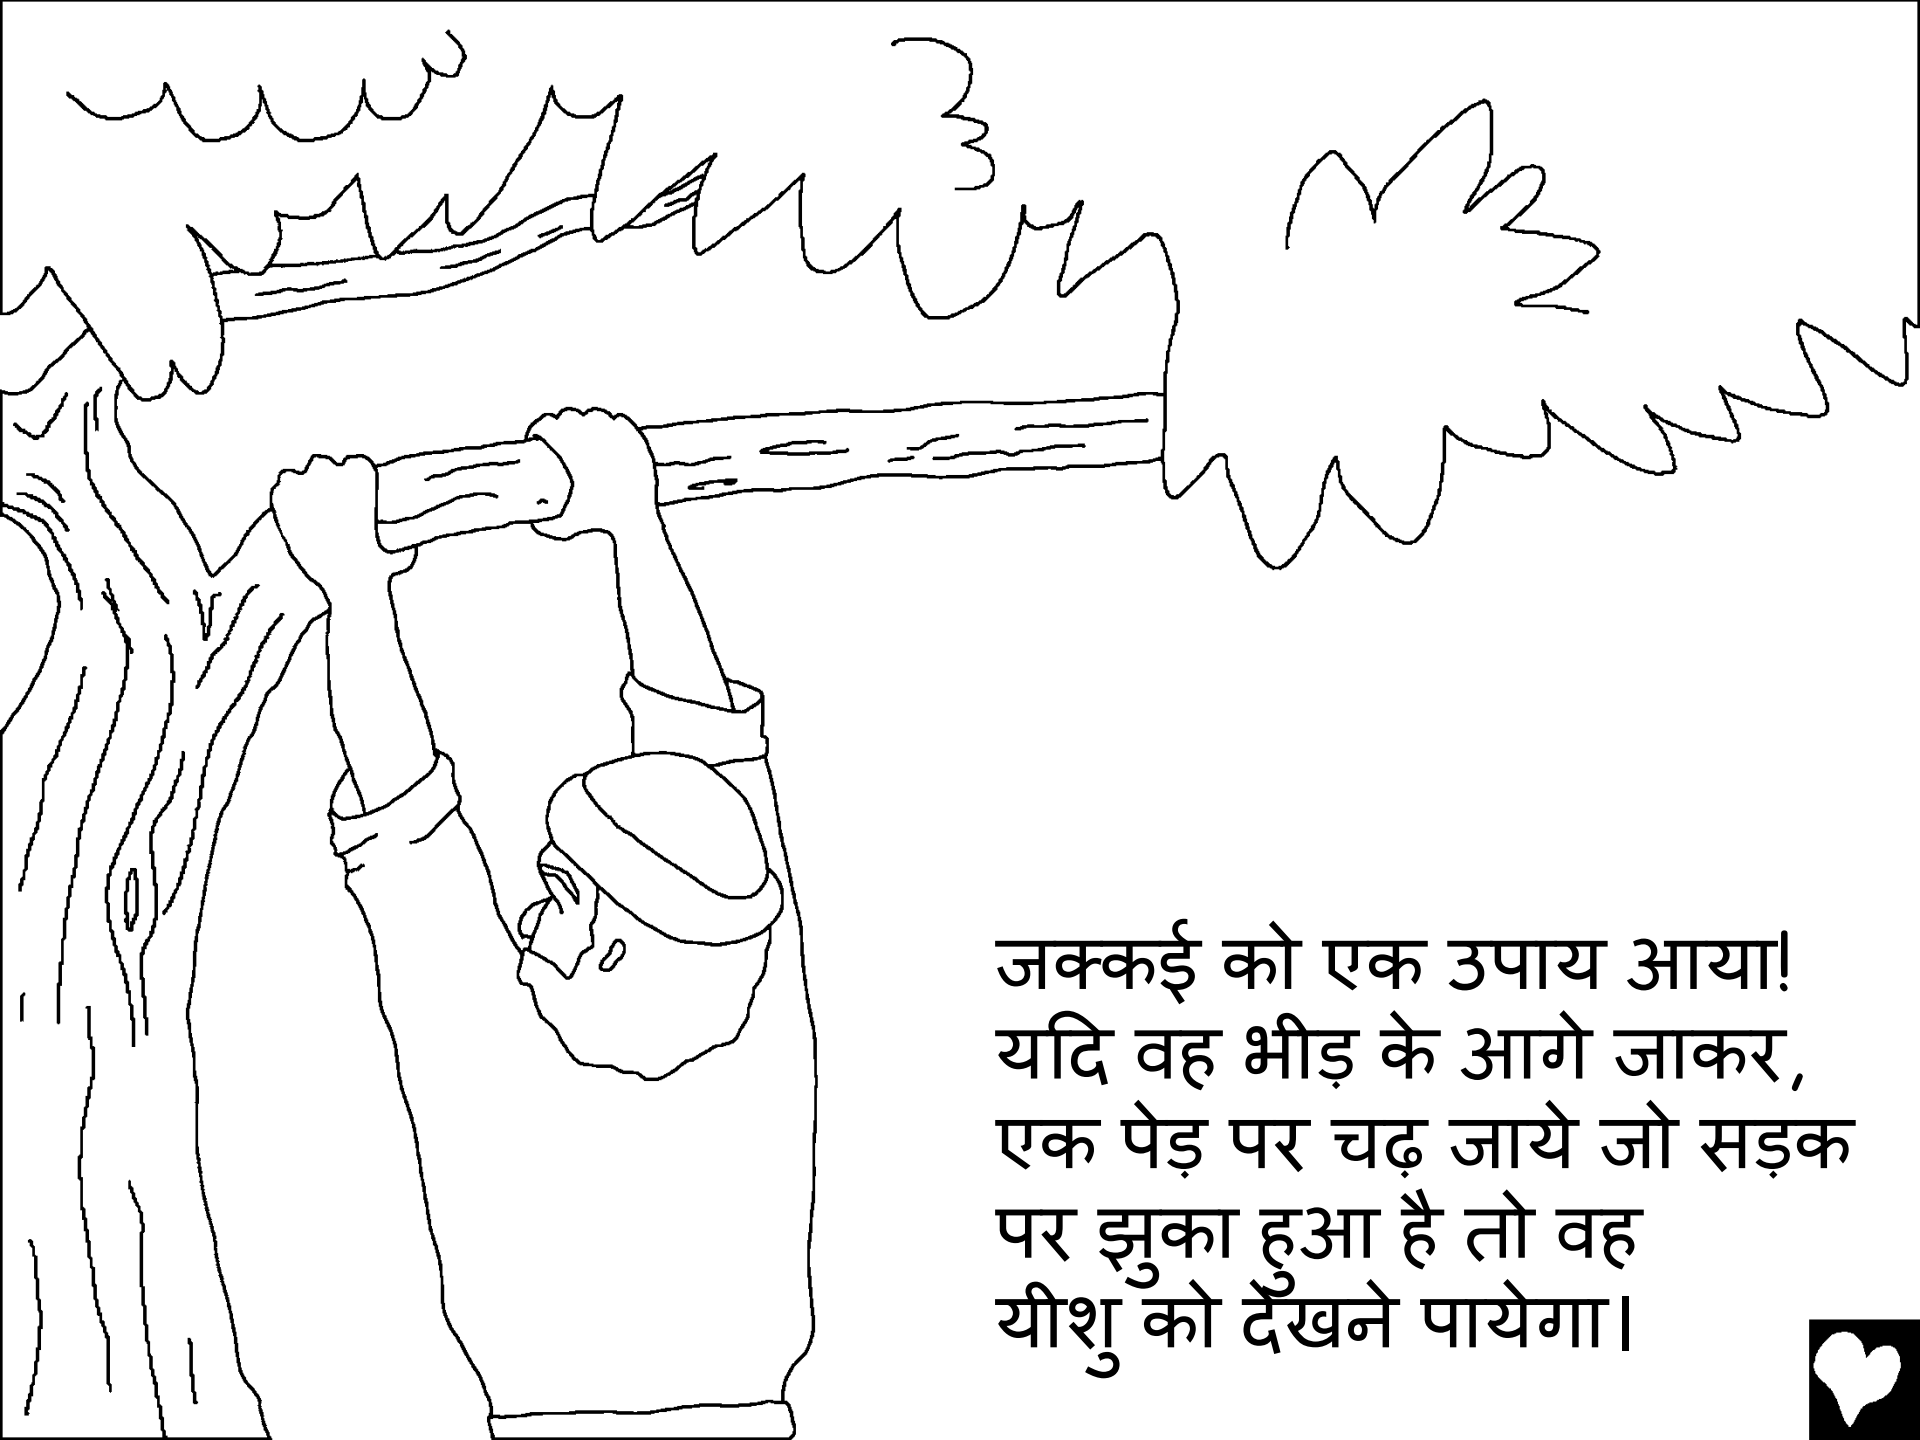 जक्कई को एक उपाय आया!
यदि वह भीड़ के आगे जाकर,
एक पेड़ पर चढ़ जाये जो सड़क
पर झुका हुआ है तो वह
यीशु को देखने पायेगा।